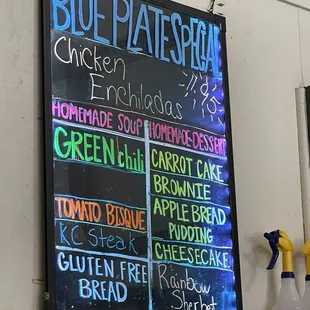 BLUE PLATE SPECIAL
Chicken
Enchiladas
11.95
HOMEMADE SOUP
GREEN chili
TOMATO BISQUE
KC Steak
GLUTEN FREE
BREAD
HOMEMADE DESSERT
CARROT CAKE
BROWNIE
APPLE BREAD
PUDDING
CHEESECAKE
Rainbow
Sherbet